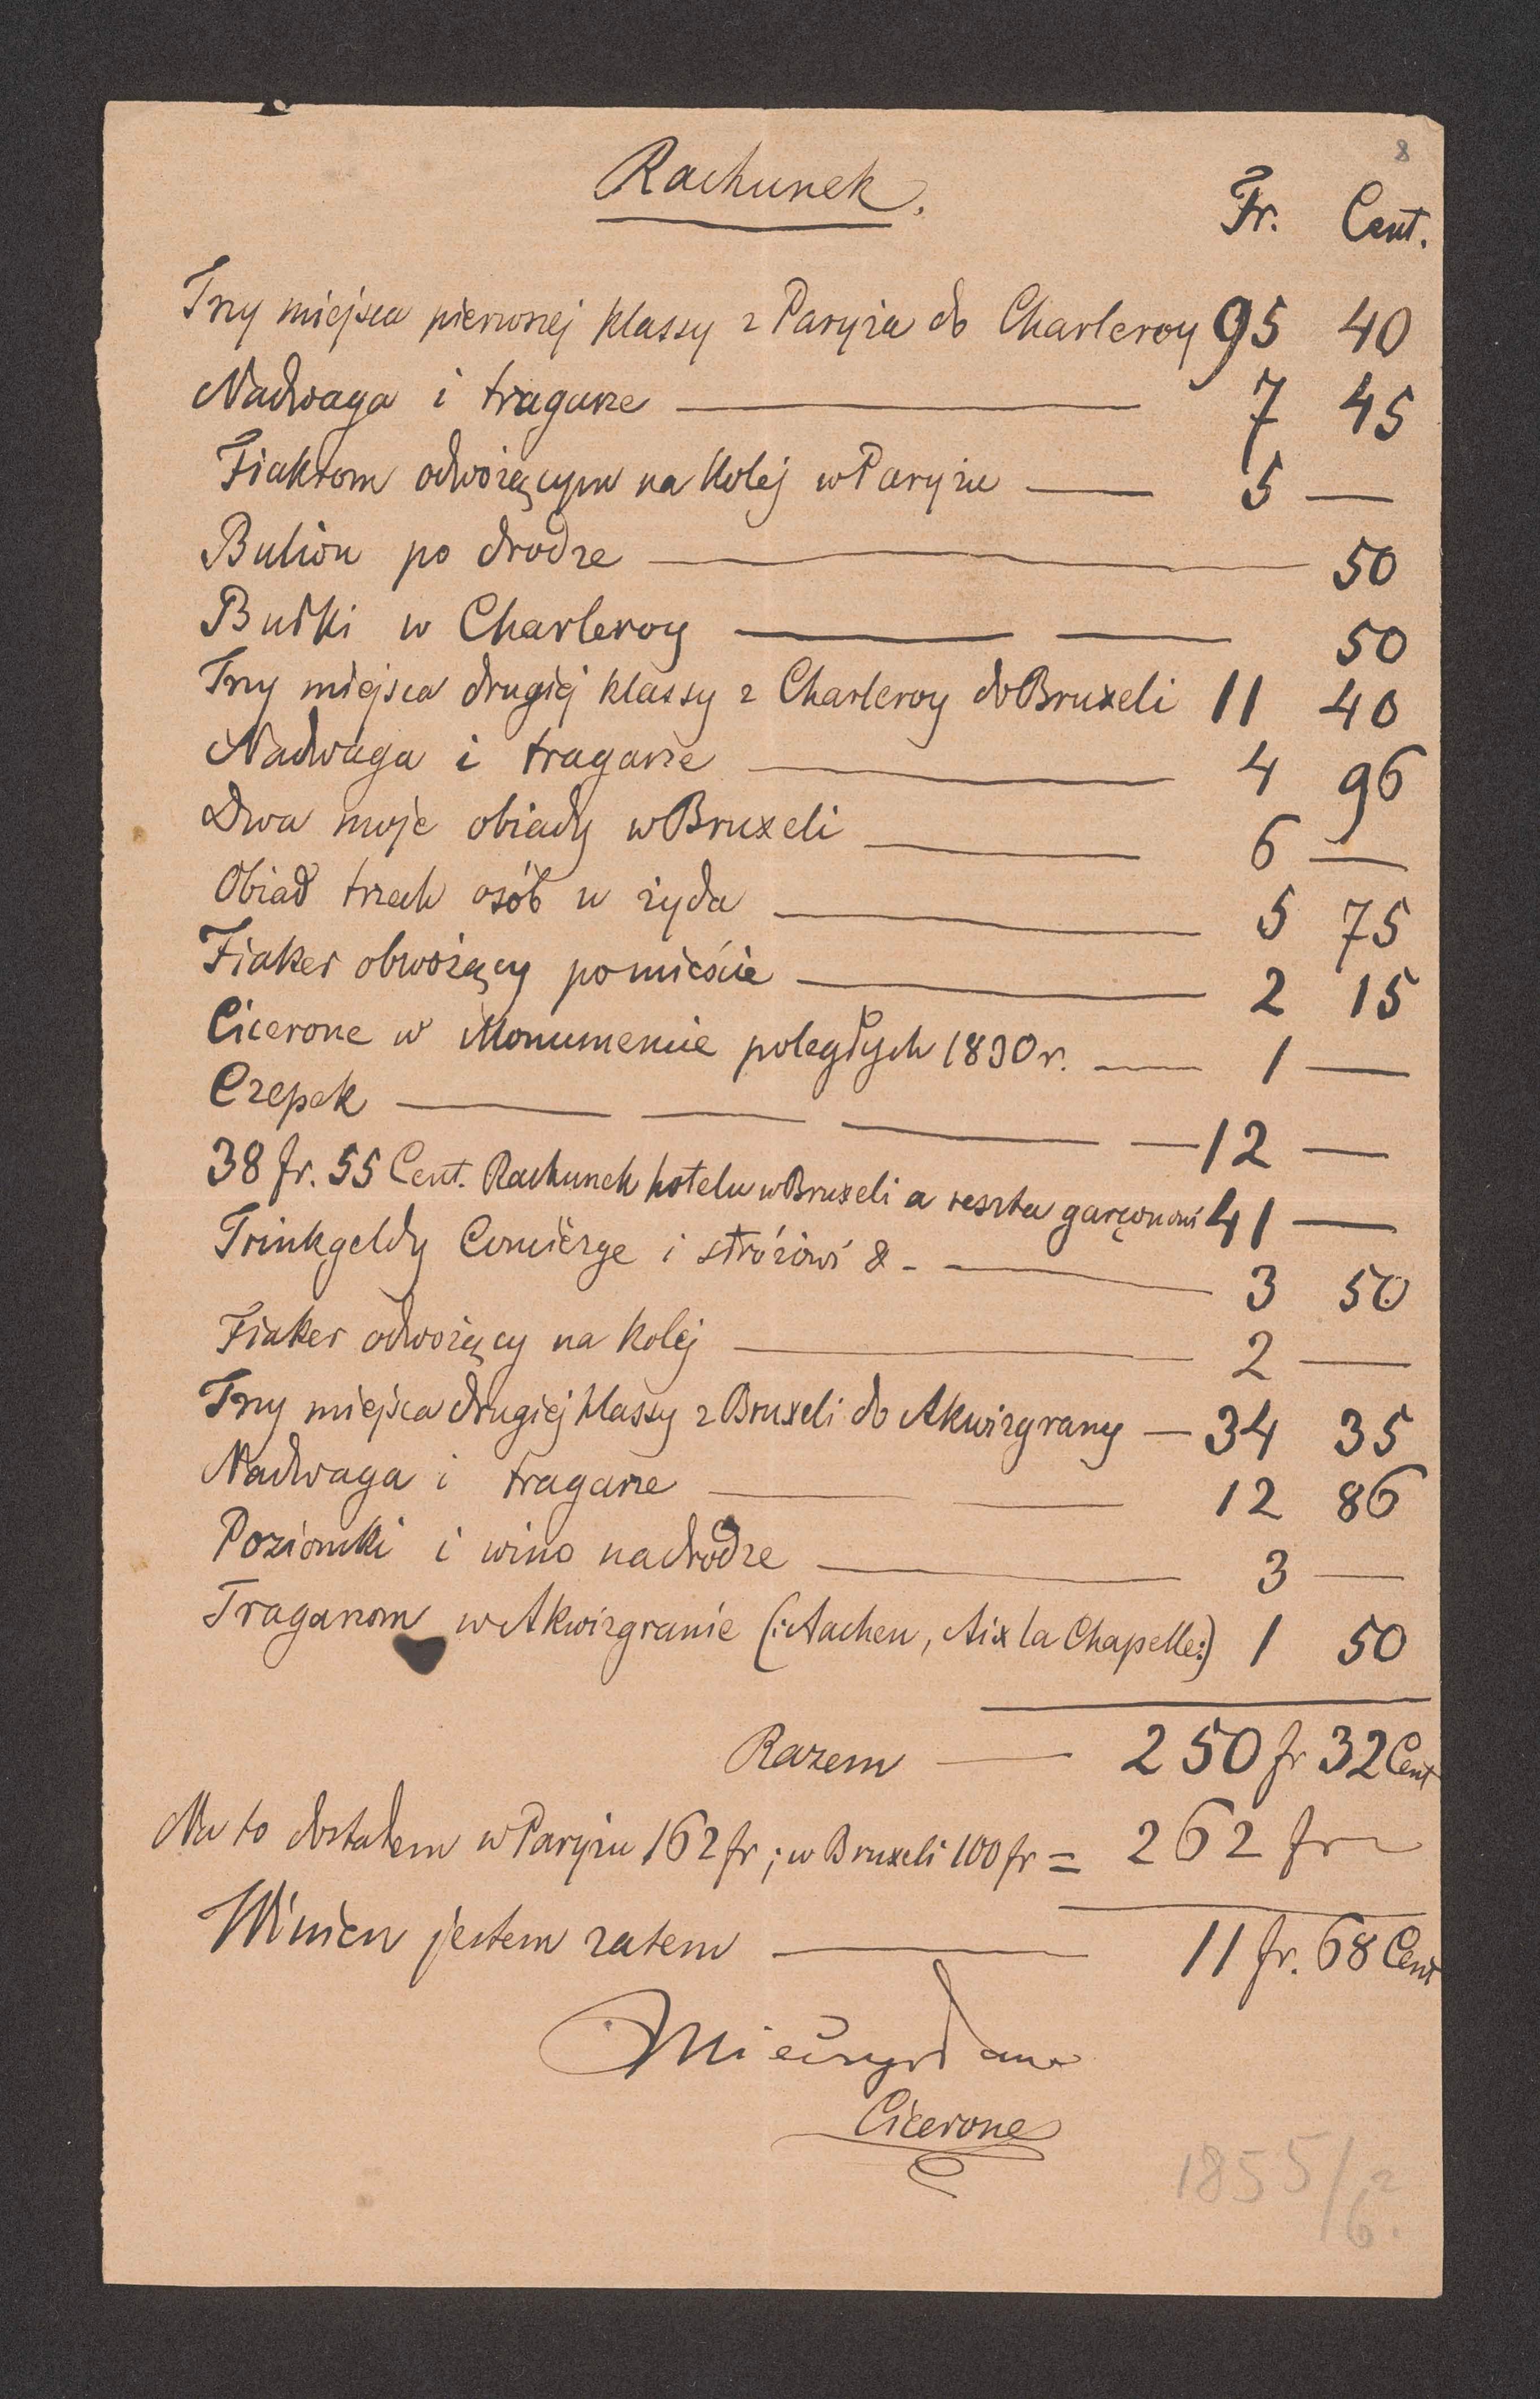 8
Rachunek. Fr. Cent.
Trzy miejsca pierwszej klassy z Paryża do Charleroy 95 40
Nadwaga i tragarze — 7 45
Fiakrom odwożącym na kolej w Paryżu — 5 —
Bulion po drodze — 50
Bułki w Charleroy — — 50
Trzy miejsca drugiej klassy z Charleroy do Bruxeli 11 40
Nadwaga i tragarze — 4 96
Dwa moje obiady w Bruxeli — 6 —
Obiad trzech osób u żyda — 5 75
Fiaker obwożący po mieście — 2 15
Cicerone w Monumencie poległych 1830 r. — 1 —
Czepek — — — — 12 —
38 fr. 55 Cent. Rachunek hotelu w Bruxeli a reszta garçonowi 41 —
Trinkgeldy Concièrge i stróżowi & - — 3 50
Fiaker odwożący na kolej — 2 —
Trzy miejsca drugiej klassy z Bruxeli do Akwizgrany — 34 35
Nadwaga i tragarze — — 12 86
Poziomki i wino na drodze — 3 —
Tragarzom w Akwizgranie (: Aachen, Aix la Chapelle :) 1 50
Razem — 250 fr 32 Cent
Na to dostałem w Paryżu 162 fr; w Bruxeli 100 fr = 262 fr
Winien jestem zatem — 11 fr. 68 Cent
Cicerone
1855/6?